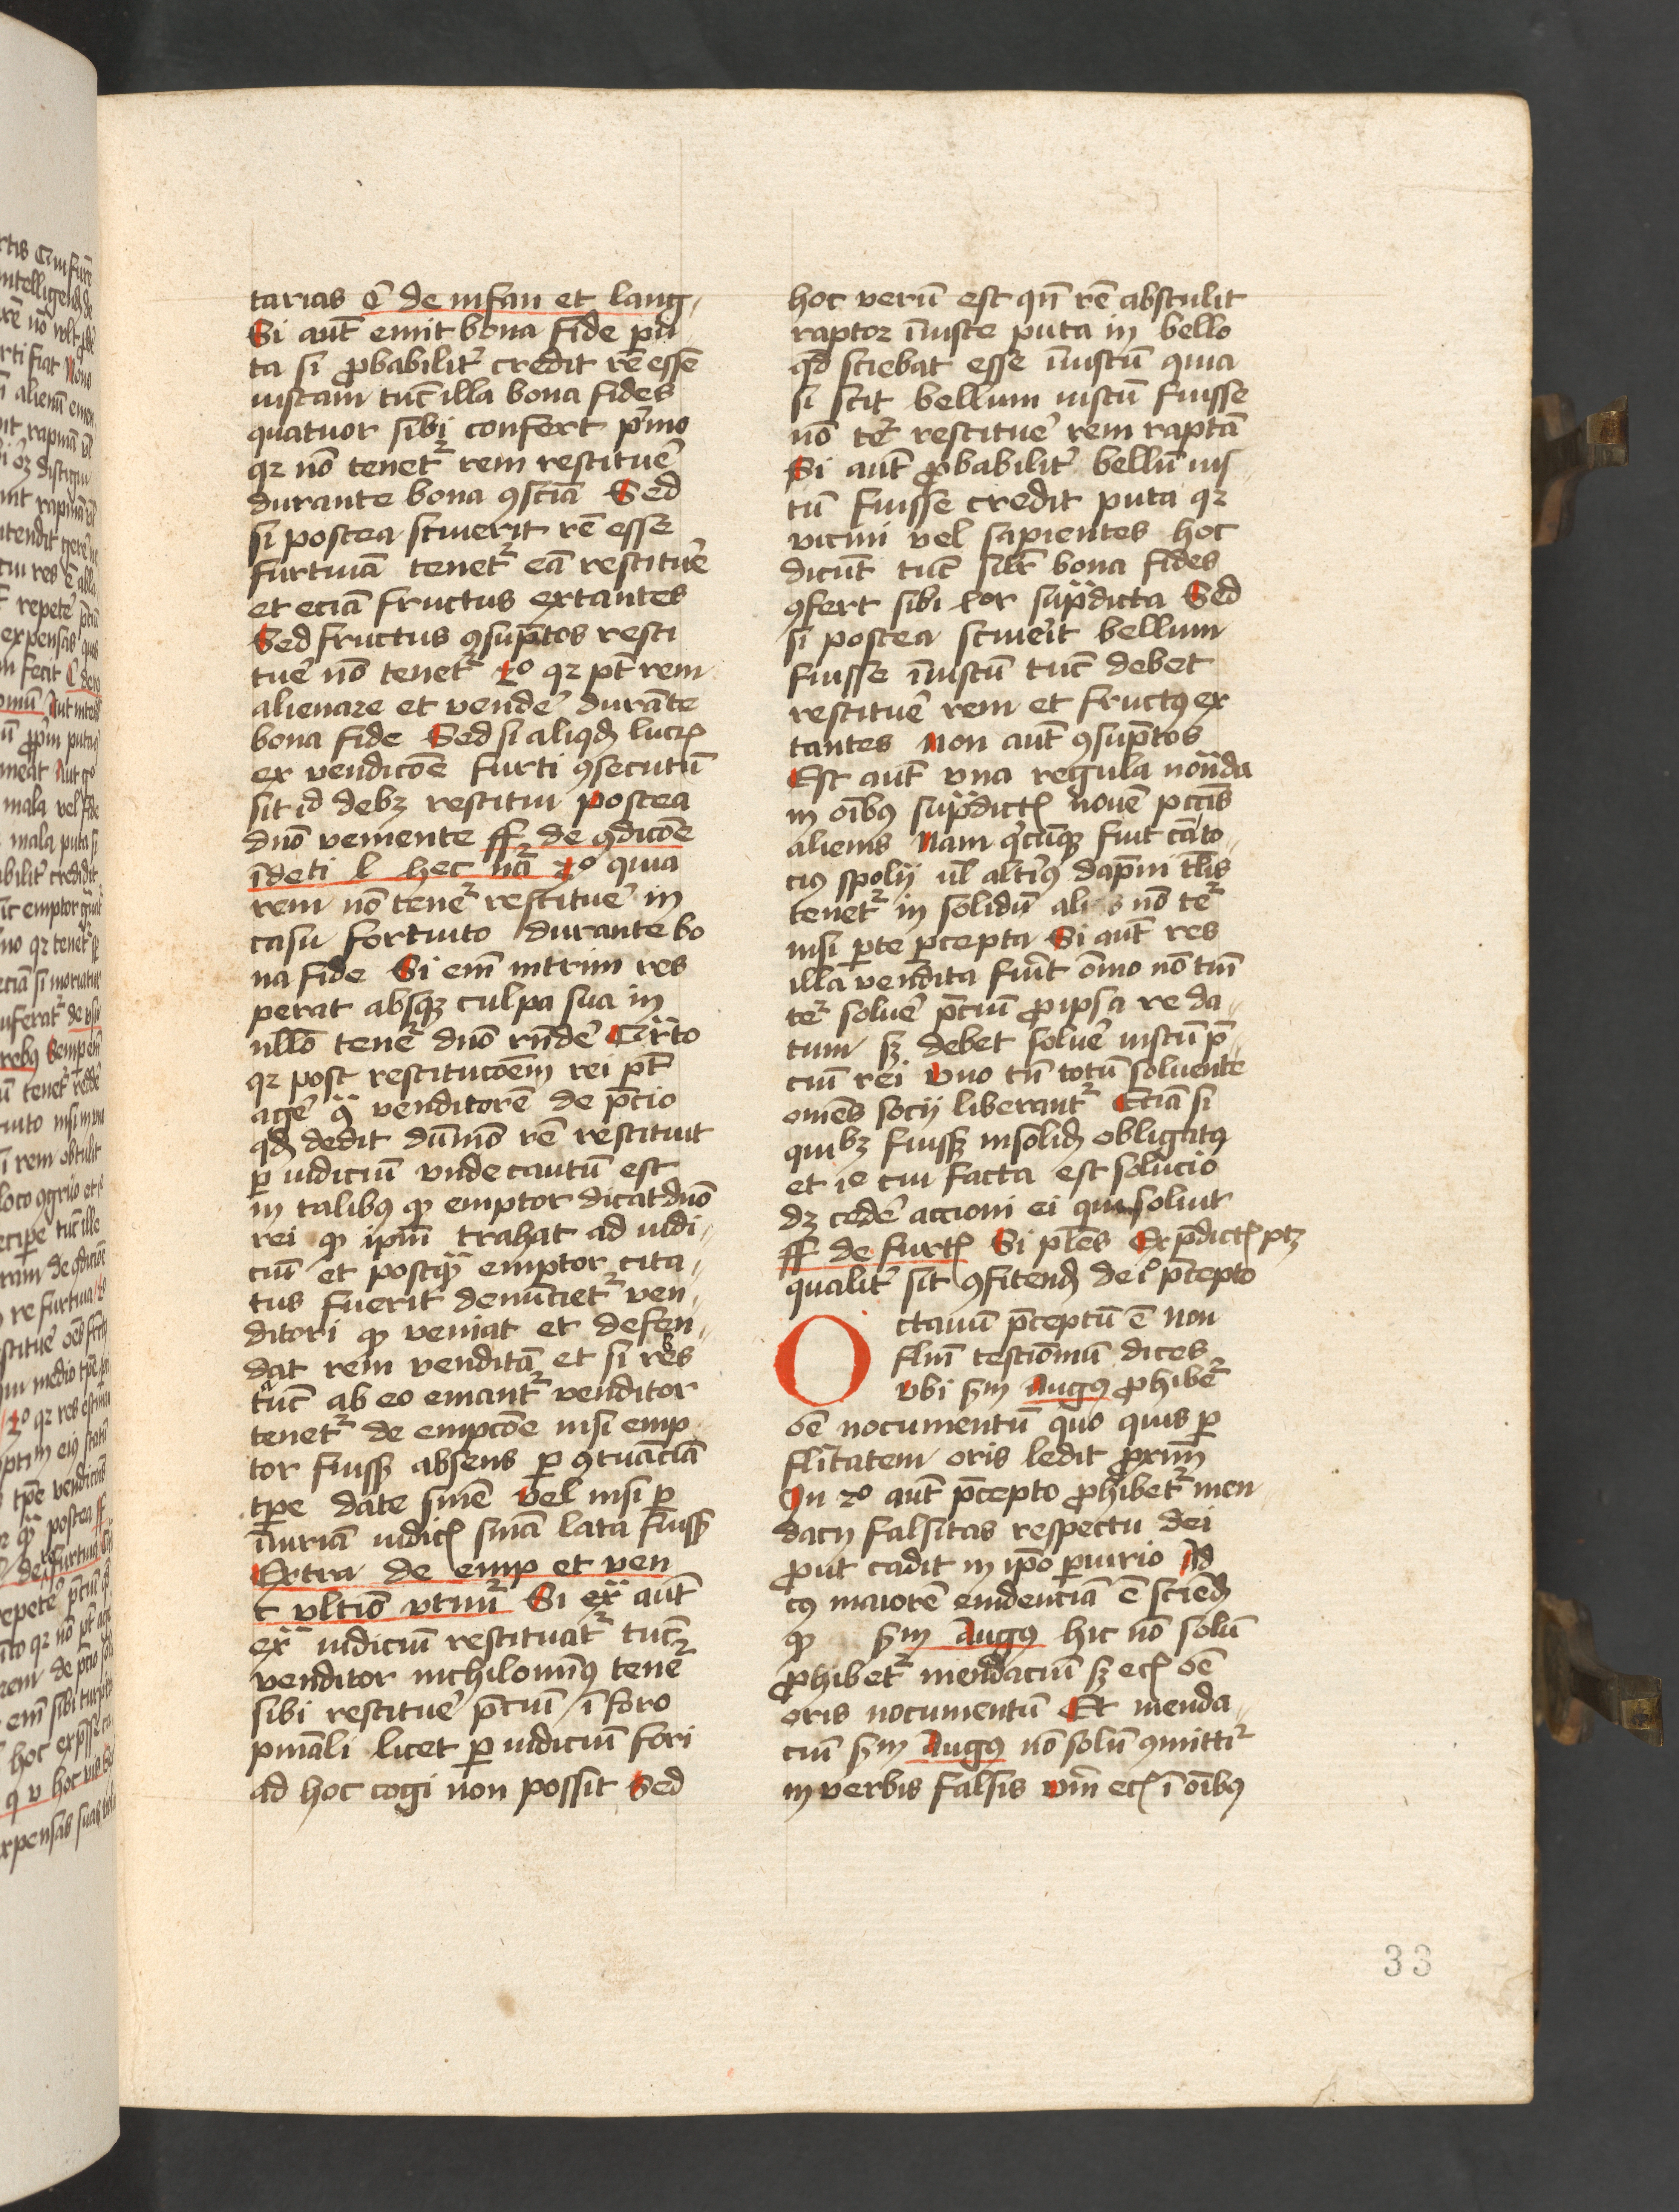 tarias C̄ de infan et lang
Si aūt emit bona fide pu
ta si ꝓbabilit̄ credit rē essē
iustam tūc illa bona fides
quatuor sibi confert p̄mo
qꝛ nō tenet᷑ rem restituē
durante bona ꝯsciā Sed
si postea sciuerit rē esse
furtiuā tenet᷑ eā restituē
et eciā fructus extantes
Sed fructus ꝯsūptos resti
tuē nō tenet᷑ 2º qꝛ pt̄ rem
alienare et vendē durāte
bona fide Sed si aliqd̄ lucꝭ
ex vendicōe furti ꝯsecutū
sit id debꝫ restitui postea
dn̄o veniente ff de ꝯdicōe
īdeti l hec nā 3º quia
rem nō tenet᷑ restituē in
casu fortuito durante bo
na fide Si em̄ intrim res
perat absqꝫ culpa sua in
nullo tenet᷑ dn̄o rn̄dē Qr̄to
qꝛ post restitucōem rei pt̄
agē ꝯ̄ venditorē de p̄cio
qd̄ dedit dūmō rē restituit
ꝑ iudiciū vnde cautū est
in talibꝰ ꝙ emptor dicat dn̄o
rei ꝙ ipm̄ trahat ad iudi
ciū et postqꝫ emptor cita
tus fuerit denūciet᷑ ven
ditori ꝙ veniat et defen
dat rem venditā et si res
tūc ab eo emant᷑ venditor
tenet᷑ de empcōe nisi emp
tor fuissꝫ absens ꝑ ꝯtuāciā
tp̄e date sn̄iē Vel nisi ꝑ
īiuriā iudicꝭ sn̄iā lata fuissꝫ
Extra de emp et ven
c vltiō vtimr̄ Si ex̄ aūt
ex̄ iudiciū restituat᷑ tūc
venditor nichilominꝰ tenet᷑
sibi restituē p̄ciū ī foro
pn̄iāli licet ꝑ iudiciū fori
ad hoc cogi non possit Sed
hoc verū est qn̄ rē abstulit
raptor īiuste puta in bello
qd̄ sciebat esse īiustū quia
si scit bellum iustū fuisse
nō tet᷑ restituē rem raptā
Si aūt ꝓbabilit̄ bellū ius
tū fuisse credit puta qꝛ
vicini vel sapientes hoc
dicūt tūc silr̄ bona fides
ꝯfert sibi 4or sup̄dicta Sed
si postea sciueīt bellum
fuisse īiustū tūc debet
restituē rem et fructꝰ ex
tantes Non aūt ꝯsūptos
Est aūt vna regula notāda
in oībꝰ sup̄dictꝭ nouē pctīs
alienis Nam qͥcūqꝫ fuit cāto
ciꝰ spolij ul̄ altiꝰ dāpni tl̄is
tenet᷑ in solidū alias nō tet᷑
nisi ꝑte ꝑcepta Si aūt res
illa vendita fuīt om̄io nō tm̄
tet᷑ soluē p̄ciū ꝓ ipsa re da
tum sꝫ debet soluē iustū p̄
ciū rei Vno tn̄ totū soluente
omēs socij liberant᷑ Eciā si
quibꝫ fuissꝫ insolid̄ obligatꝰ
et ie cui facta est solucio
dꝫ cedē accioni ei qui soluit
ff de furtꝭ Si p̄les Ex p̄dictꝭ ptꝫ
qualit̄ sit ꝯfitend̄ de iº p̄cepto
Octauū p̄ceptū ē non
flm̄ testiōniū dices
Vbi sm̄ Augꝰ ꝓhibet᷑
oē nocumentū quo quis ꝑ
flītatem oris ledit ꝓxim̄
In 2º aūt p̄cepto ꝓhibet᷑ men
dacij falsitas respectu dei
ꝓut cadit in ipō ꝑiurio Ad
cꝰ maiorē euidenciā ē sciend̄
ꝙ sm̄ Augꝰ hic nō solū
ꝓhibet᷑ mendaciū sꝫ ecꝭ oē
oris nocumentū Et menda
ciū sm̄ Augꝰ nō solū ꝯmittit᷑
in verbis falsis vm̄ ecꝭ ī oībꝰ
33